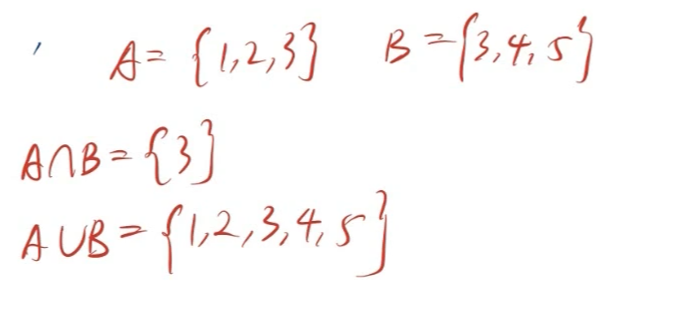 A = {1,2,3} B = {3,4,5}
A∩B = {3}
A∪B = {1,2,3,4,5}